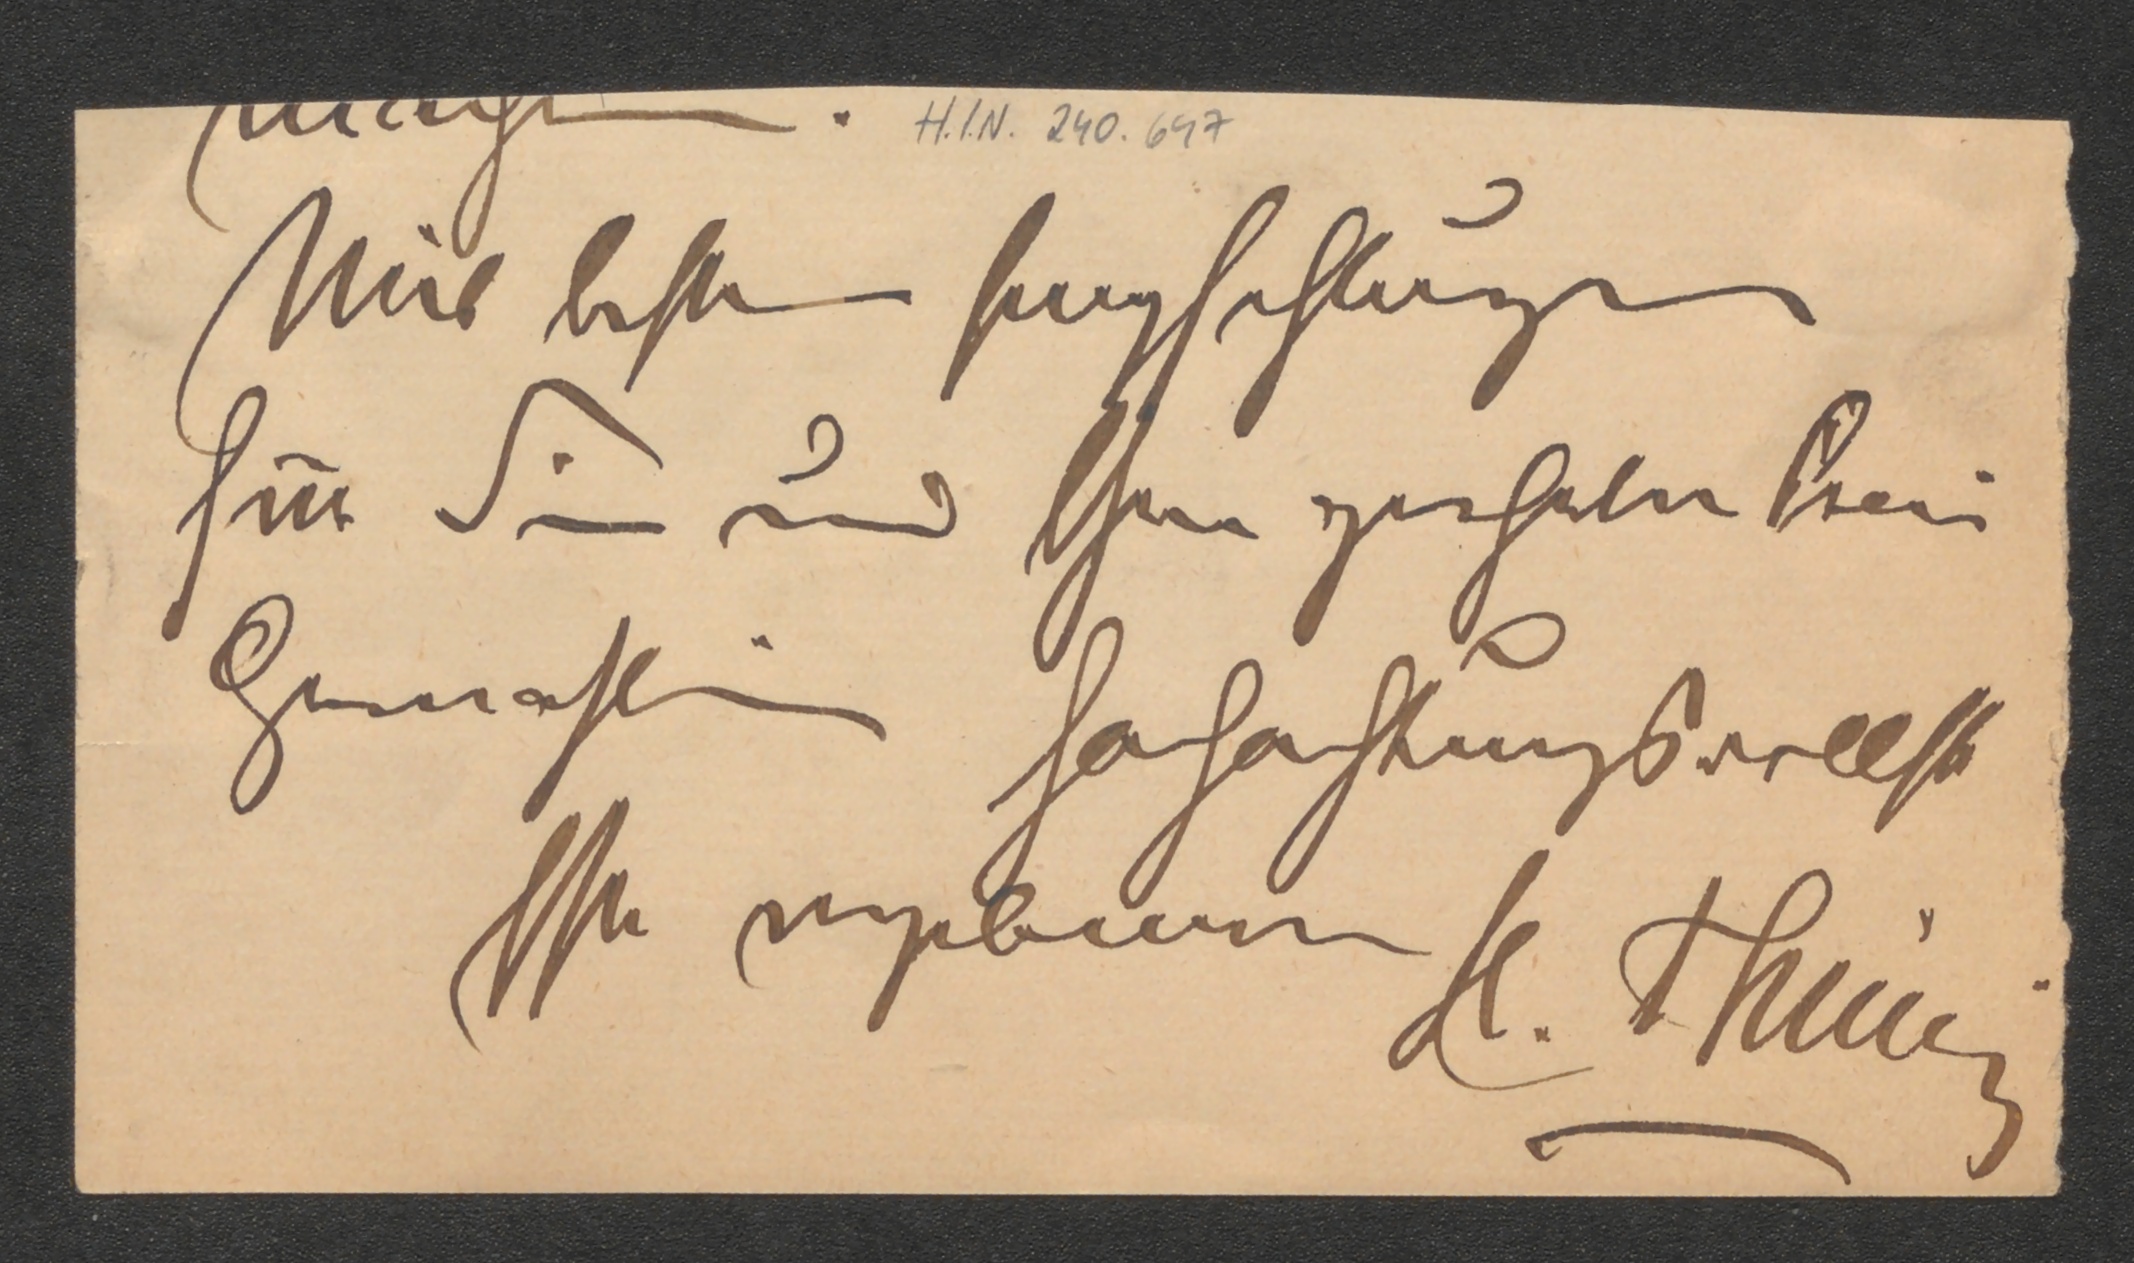 machen. H.I.N. 240.647
Mit besten Empfehlungen
für Sie und Ihre verehrte Frau
Gemahlin hochachtungsvollst
Ihr ergebener H. Thimig